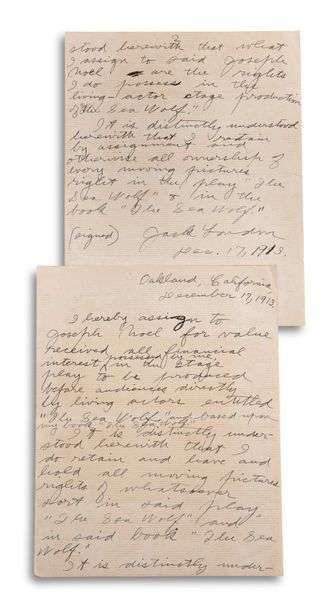 2
stood herewith that what
I assign to said Joseph
Noel are the rights
I do possess in the
living-actor stage production
of "The Sea Wolf."
It is distinctly understood
herewith that I retain
by assignment and
otherwise all ownership of
every moving pictures
right in the play "The
Sea Wolf" & in the
book "The Sea Wolf."
(signed) Jack London
Dec. 17, 1913.
Oakland, California,
December 17, 1913.
I hereby assign to
Joseph Noel for value
received all financial
interest, possessed by me, in the stage
play to be produced
before audiences directly
by living actors entitled
"The Sea Wolf" and based upon
my book "The Sea Wolf."
It is distinctly under-
stood herewith that I
do retain and have and
hold all moving pictures
rights of whatsoever
sort in said play
"The Sea Wolf" and
in said book "The Sea
Wolf."
It is distinctly under-